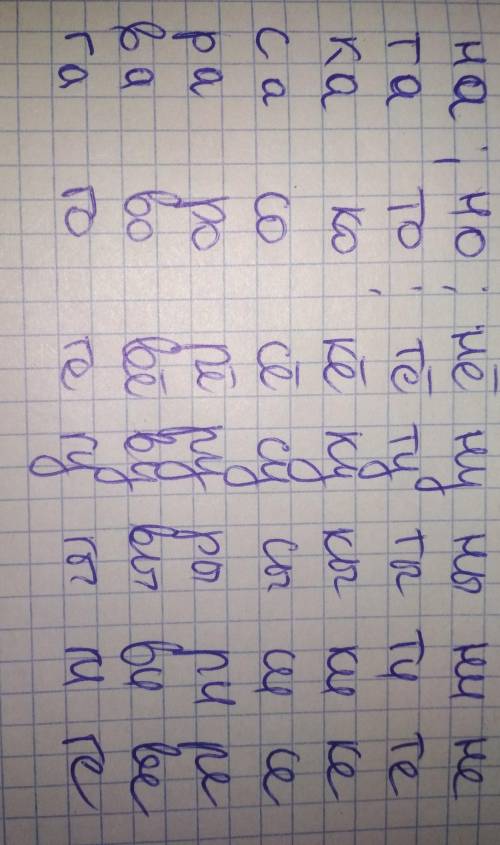 на, но, нё ну ны ни не
та то, тё ту ты ти те
ка ко кё ку кы ки ке
са со сё су сы си се
ра ро рё ру ры ри ре
ва во вё ву вы ви ве
га го ге гу гы ги ге